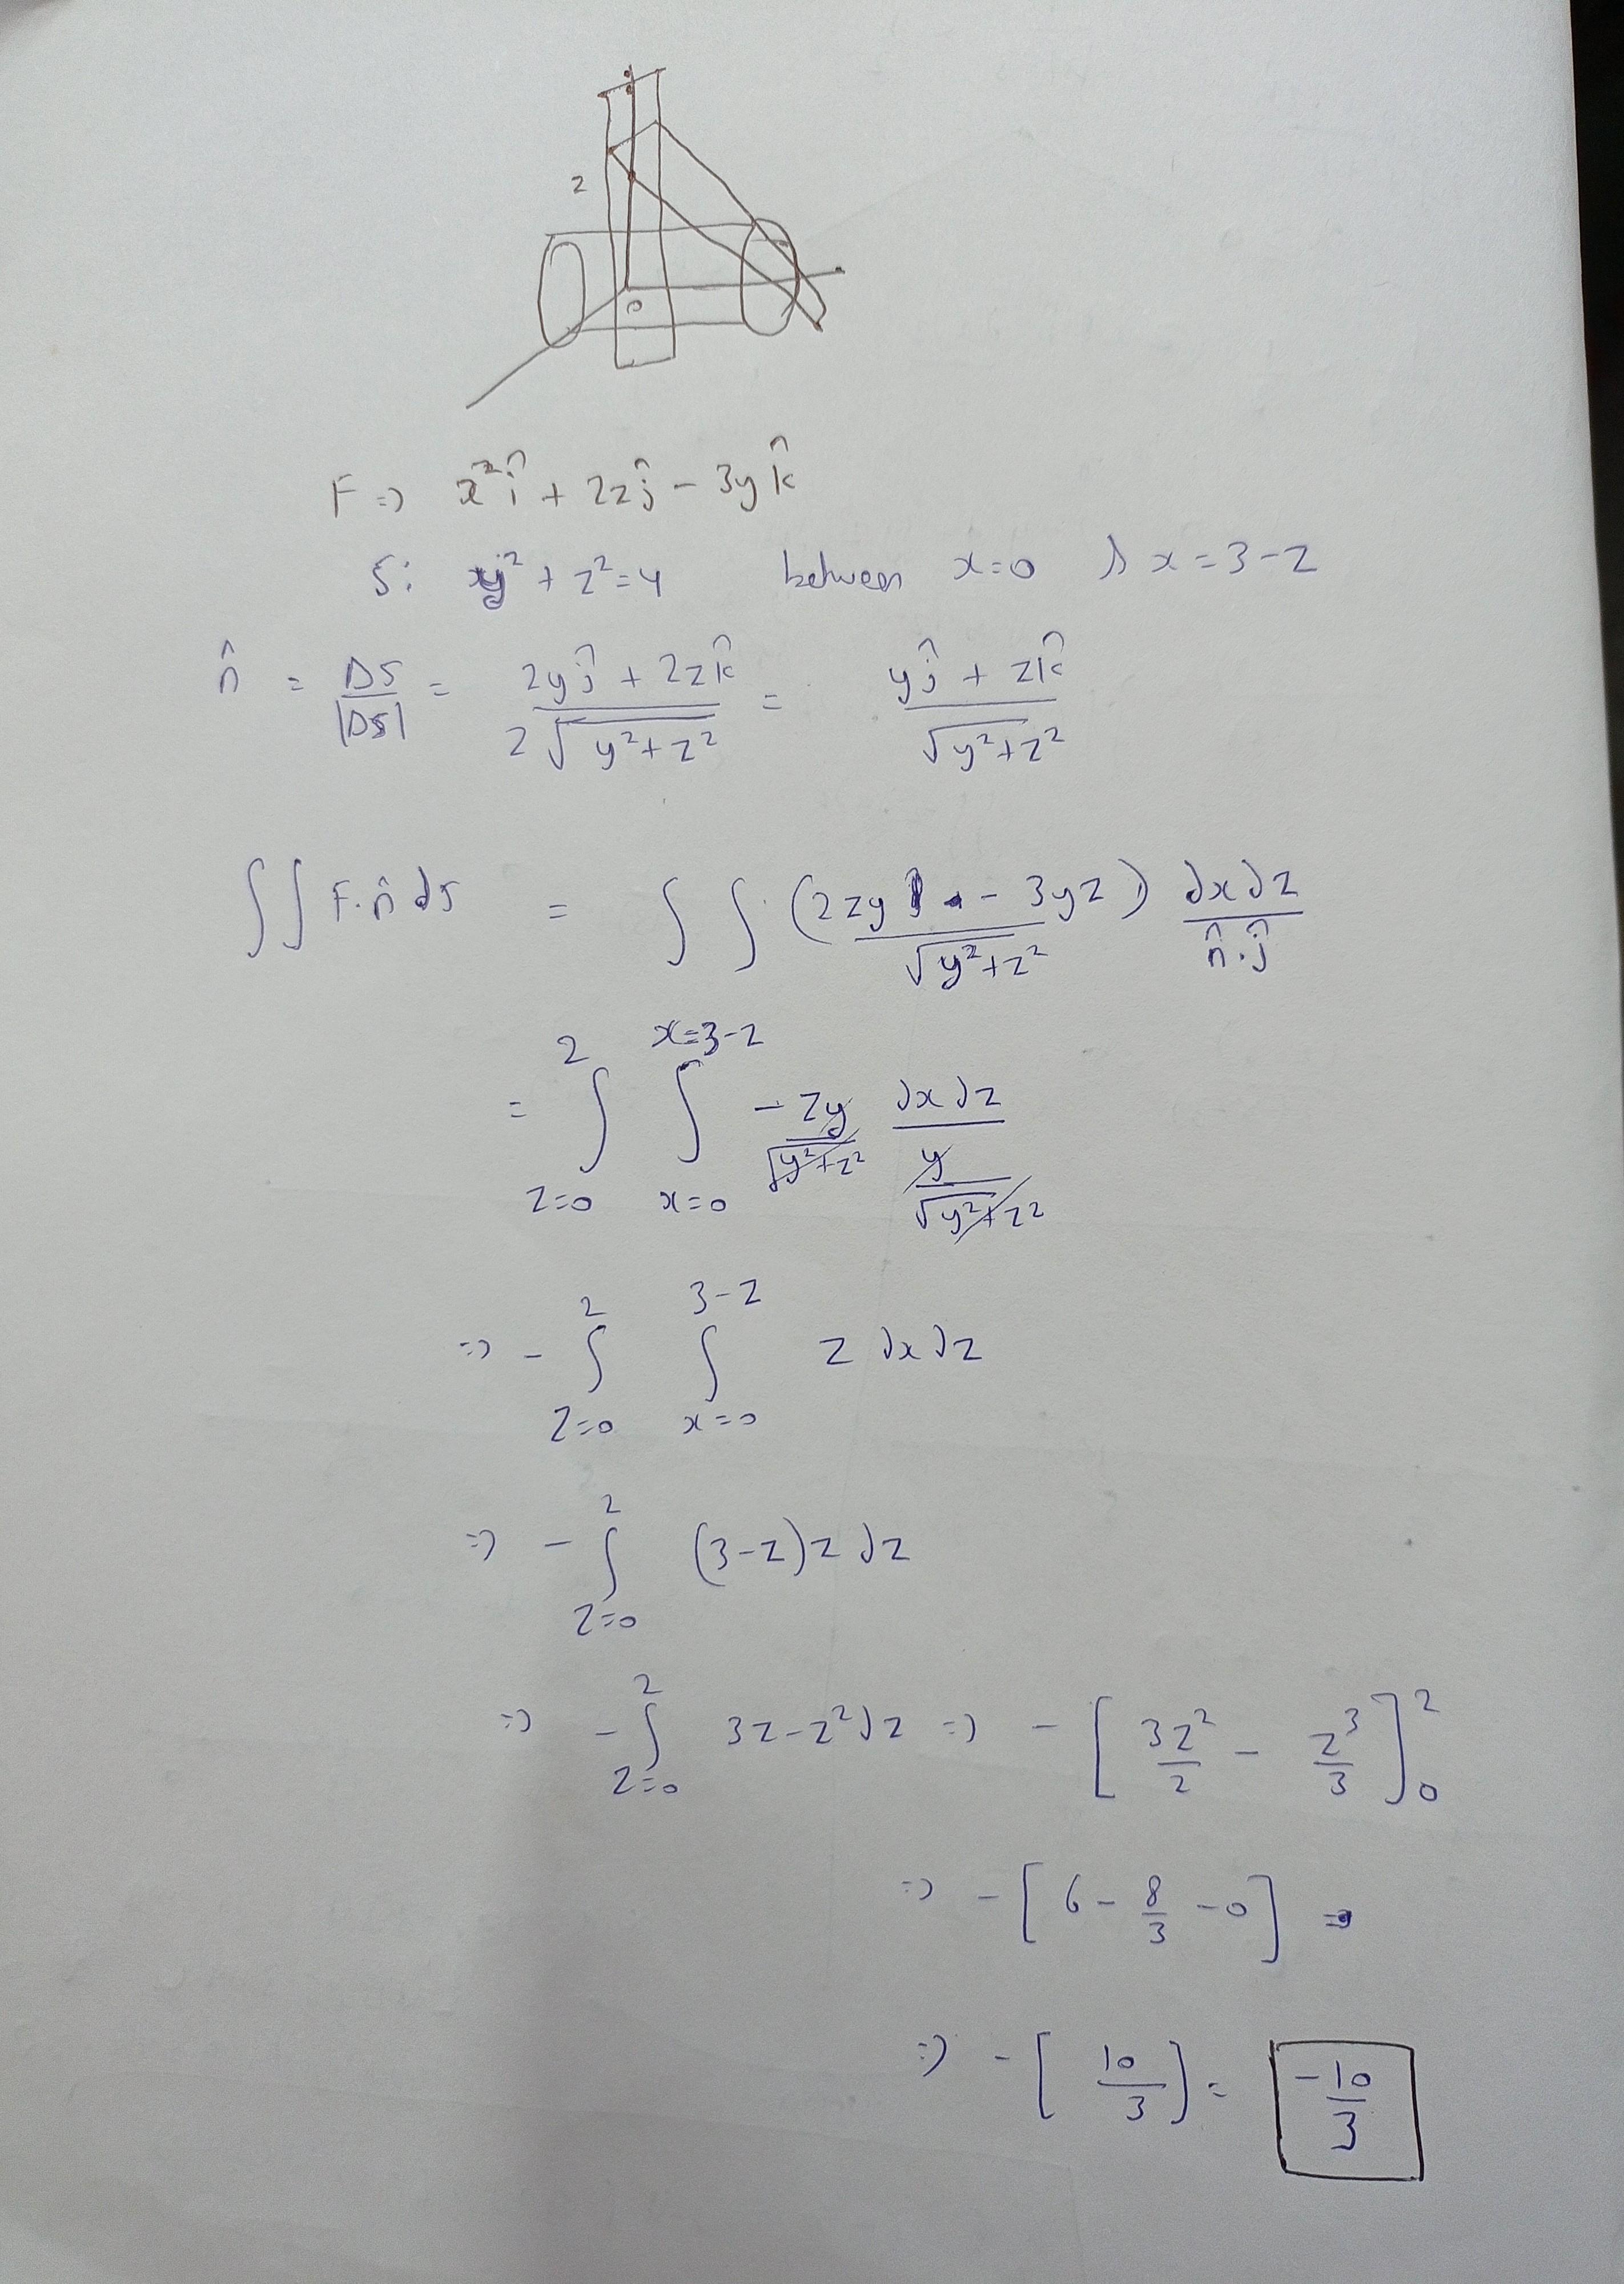 2
0
F ⇒ x²î + 2zĵ - 3yk̂
S: y² + z² = 4 between x=0 & x=3-z
n̂ = ∇S/|∇S| = (2yĵ + 2zk̂)/(2√(y²+z²)) = (yĵ + zk̂)/√(y²+z²)
∫∫ F·n̂ ds = ∫∫ (2zy - 3yz)/√(y²+z²) dxdz/(n̂·ĵ)
= ∫_{z=0}^{2} ∫_{x=0}^{x=3-z} -zy/√(y²+z²) dxdz/(y/√(y²+z²))
⇒ -∫_{z=0}^{2} ∫_{x=0}^{3-z} z dxdz
⇒ -∫_{z=0}^{2} (3-z)z dz
⇒ -∫_{z=0}^{2} 3z-z² dz ⇒ -[3z²/2 - z³/3]_0^2
⇒ -[6 - 8/3 - 0] ⇒
⇒ -[10/3] = -10/3